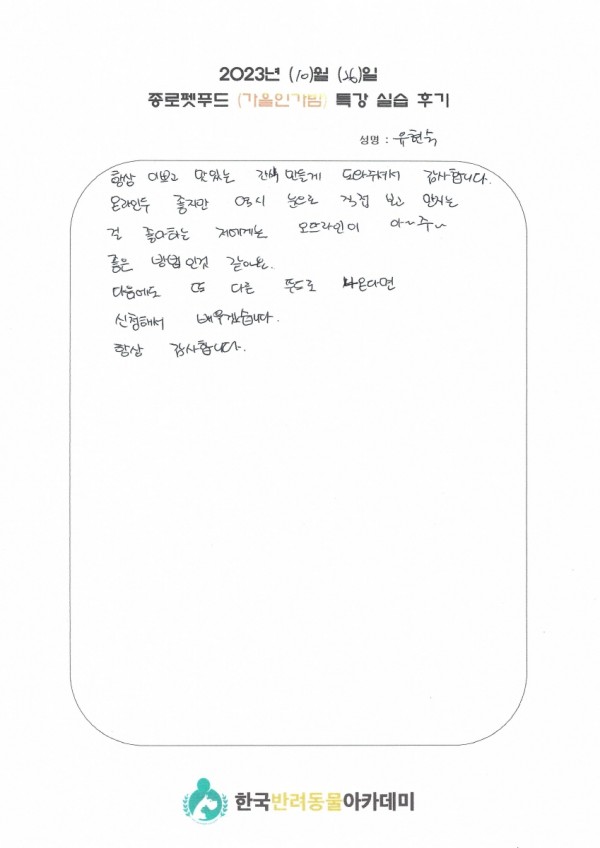 2023년 (10)월 (26)일
종로펫푸드 (가을인가밤) 특강 실습 후기
성명 : 유현숙
항상 이쁘고 맛있는 간식 만들게 도와주셔서 감사합니다.
온라인두 좋지만 역시 눈으로 직접 보고 만지는
걸 좋아하는 저에게는 오프라인이 아~주~
좋은 방법인것 같아요.
다음에도 또 다른 푸드로 나온다면
신청해서 배우겠습니다.
항상 감사합니다.
한국반려동물아카데미